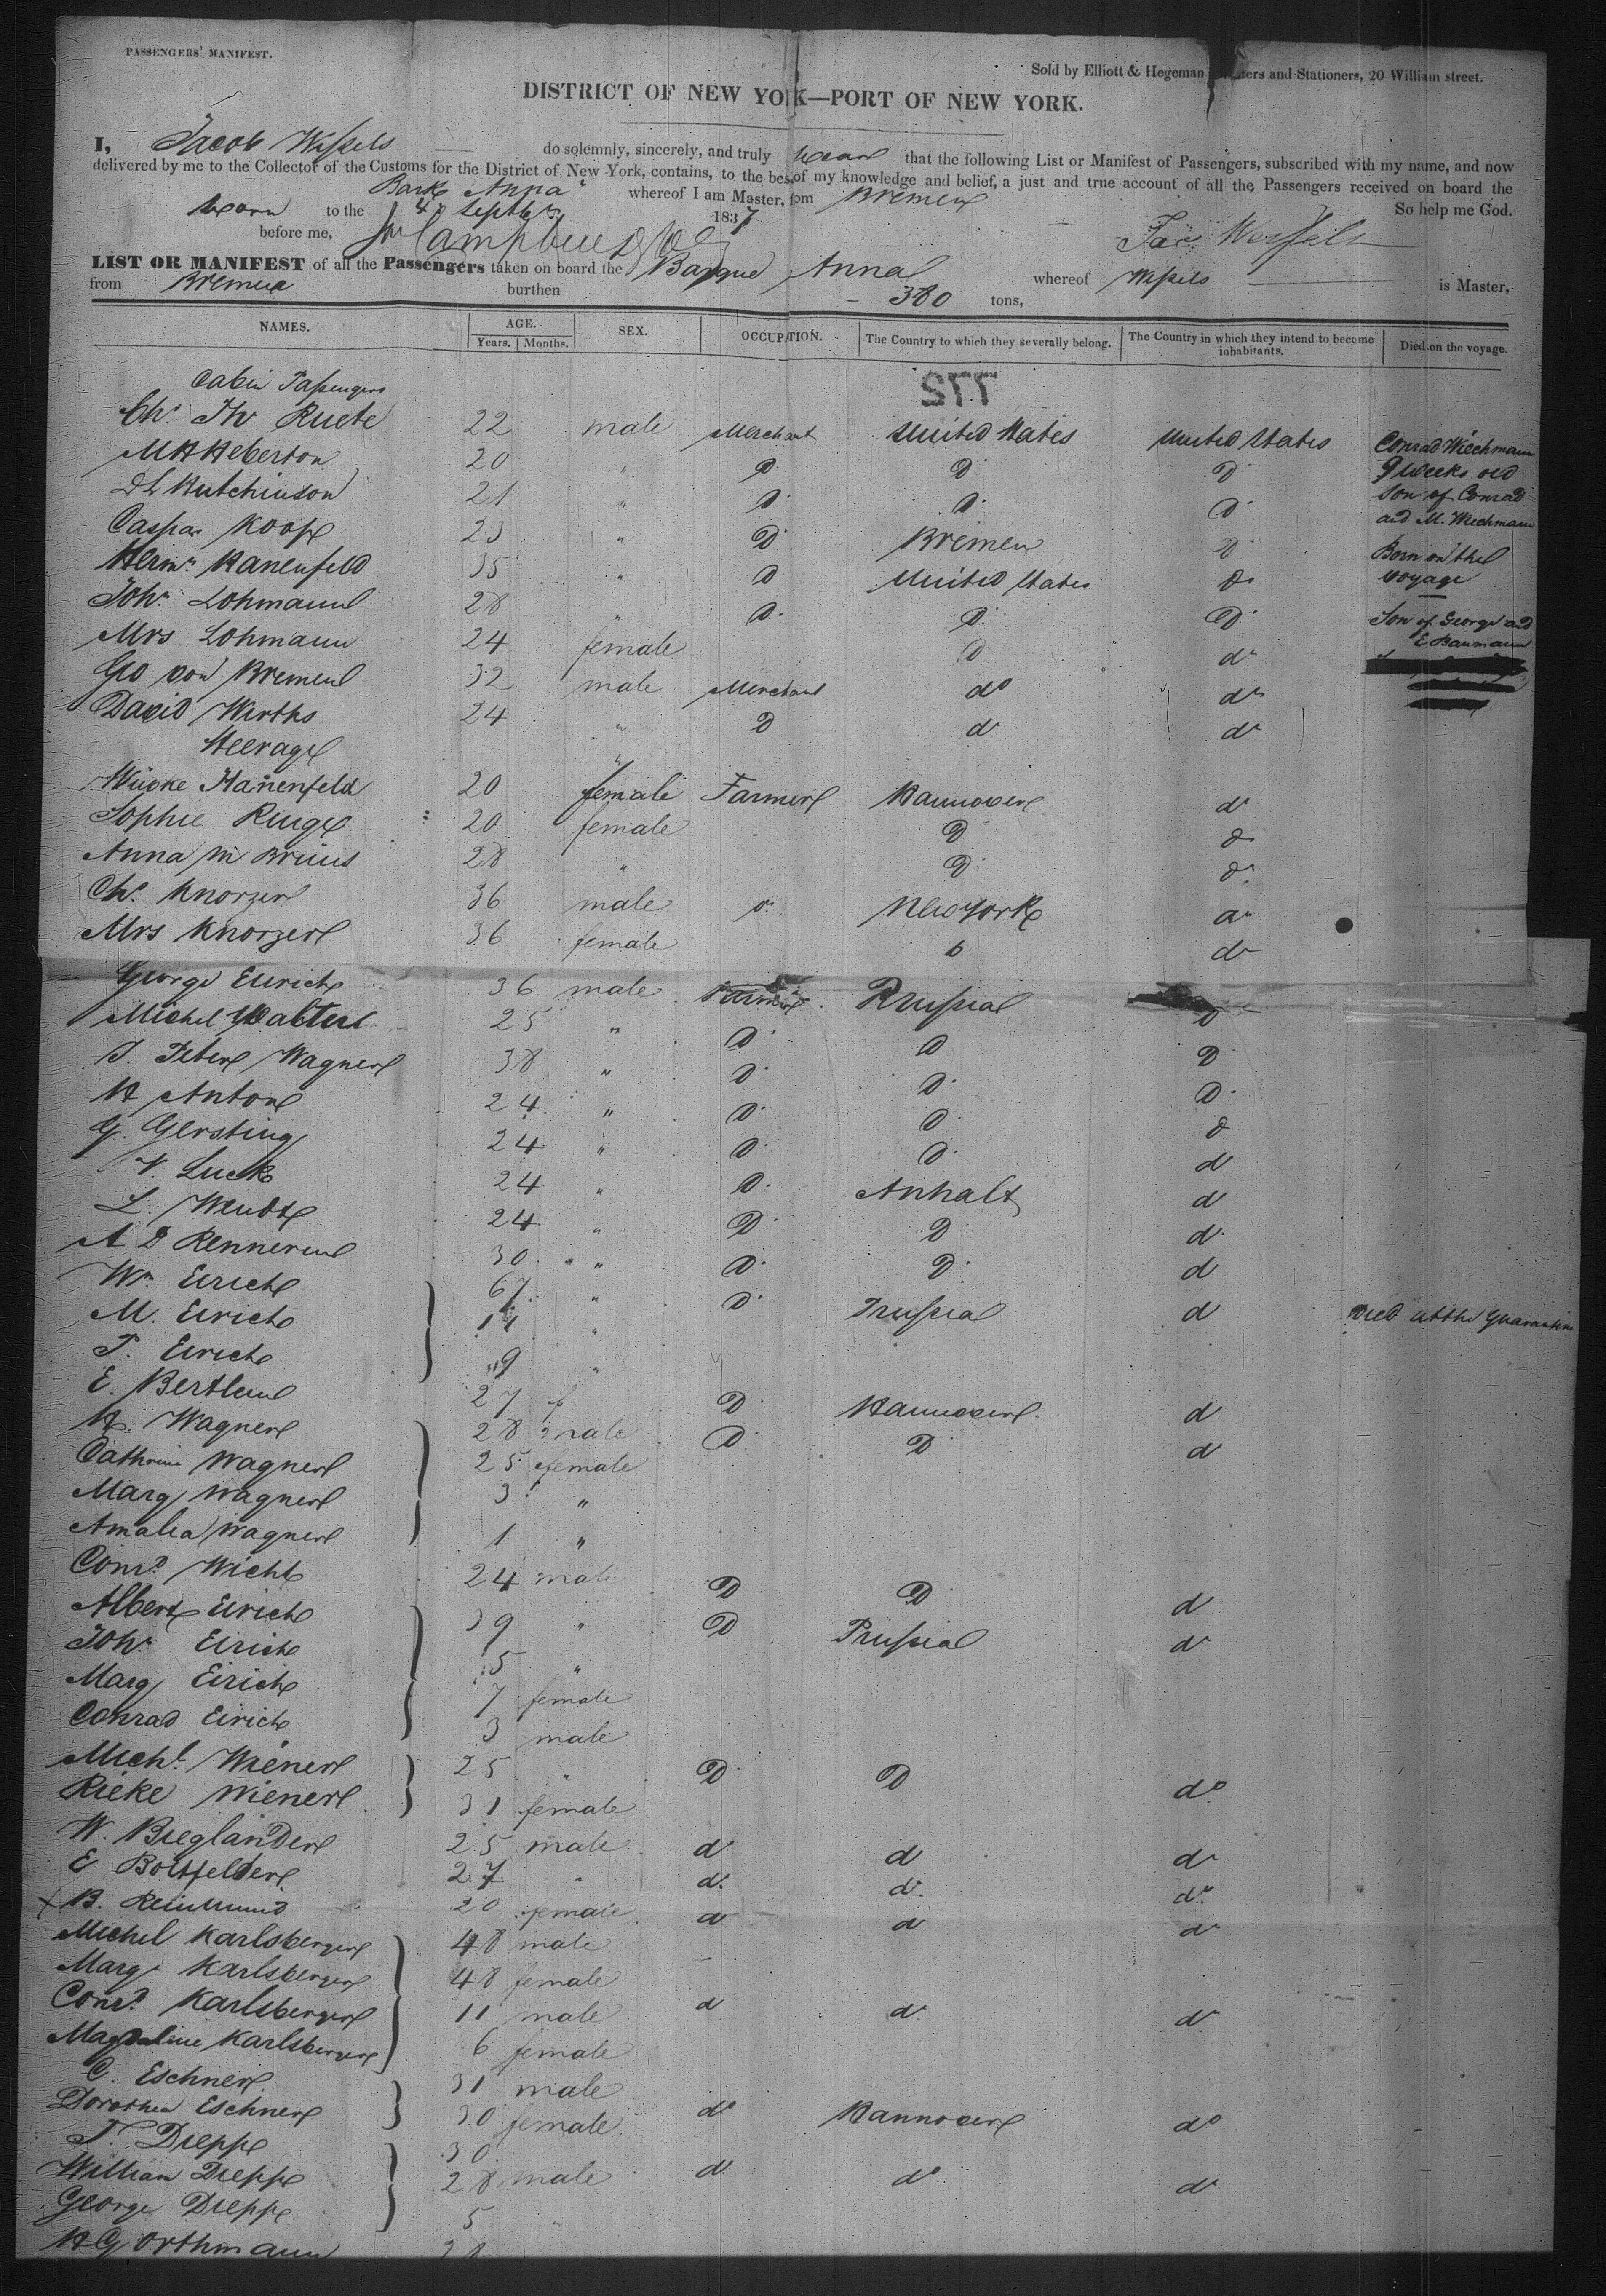 PASSENGERS' MANIFEST.
Sold by Elliott & Hegeman Printers and Stationers, 20 William street.
DISTRICT OF NEW YORK—PORT OF NEW YORK.
I, Jacob Wessels do solemnly, sincerely, and truly swear that the following List or Manifest of Passengers, subscribed with my name, and now
delivered by me to the Collector of the Customs for the District of New York, contains, to the best of my knowledge and belief, a just and true account of all the Passengers received on board the
Bark Anna whereof I am Master, from Bremen
Sworn to the 4 Septbr 1837 So help me God.
before me, Jac. Wessels
LIST OR MANIFEST of all the Passengers taken on board the Barque Anna whereof Wessels is Master,
from Bremen burthen 380 tons,
NAMES. AGE. Years. Months. SEX. OCCUPATION. The Country to which they severally belong. The Country in which they intend to become inhabitants. Died on the voyage.
Cabin Passengers
Chr. Th Ruete 22 male Merchant United States United States Conrad Wiechmann
M H Heberton 20 " D D D 9 weeks old
D L Hutchinson 21 " D D D son of Conrad
and M. Wiechmann
Caspar Koop 23 " D Bremen D Born on the
Herm. Hanenfeld 35 " D United States do voyage
Joh. Lohmann 28 " D D D Son of George and
E Baumann
Mrs Lohmann 24 female D do
Geo von Bremen 32 male Merchant do do
David Wirths 24 " D d do
Steerage
Hanenfeld 20 female Farmer Hannover do
Sophie Ringe 20 female D do
Anna M Bruns 28 " D do
Chr. Knorzer 36 male do New York do
Mrs Knorzer 36 female do
George Eurich 36 male Farmer Prussia D
Michel Walter 25 " D D D
J. Peter Wagner 38 " D D D
H Anton 24 " D D d
G. Gersting 24 " D D d
V. Luck 24 " D Anhalt d
L. Wendt 24 " D D d
A D Renner 30 " D D d
Wm Eirich 67 " D Prussia d Died at the Quarantine
M. Eirich 11 "
P. Eirich 9 "
E. Bertlein 27 f D Hannover d
H. Wagner 28 male D D d
Cathrine Wagner 25 female
Marg Wagner 3 "
Amalia Wagner 1 "
Conrd Wicht 24 male D D d
Albert Eirich 39 " D Prussia do
Joh. Eirich 5 "
Marg Eirich 7 female
Conrad Eirich 3 male
Michl Wiener 25 " D D do
Rieke Wiener 31 female
W. Bieglander 25 male d d do
E Boltfelder 27 " d d do
x B. Reinmund 20 female d d do
Michel Karlsberger 48 male
Marg Karlsberger 48 female
Conrd Karlsberger 11 male d d d
Magdaline Karlsberger 6 female
C. Eschner 31 male
Dorothea Eschner 30 female do Hannover do
T. Diepp 30
William Diepp 28 male d do do
George Diepp 5
H G Orthmann 28